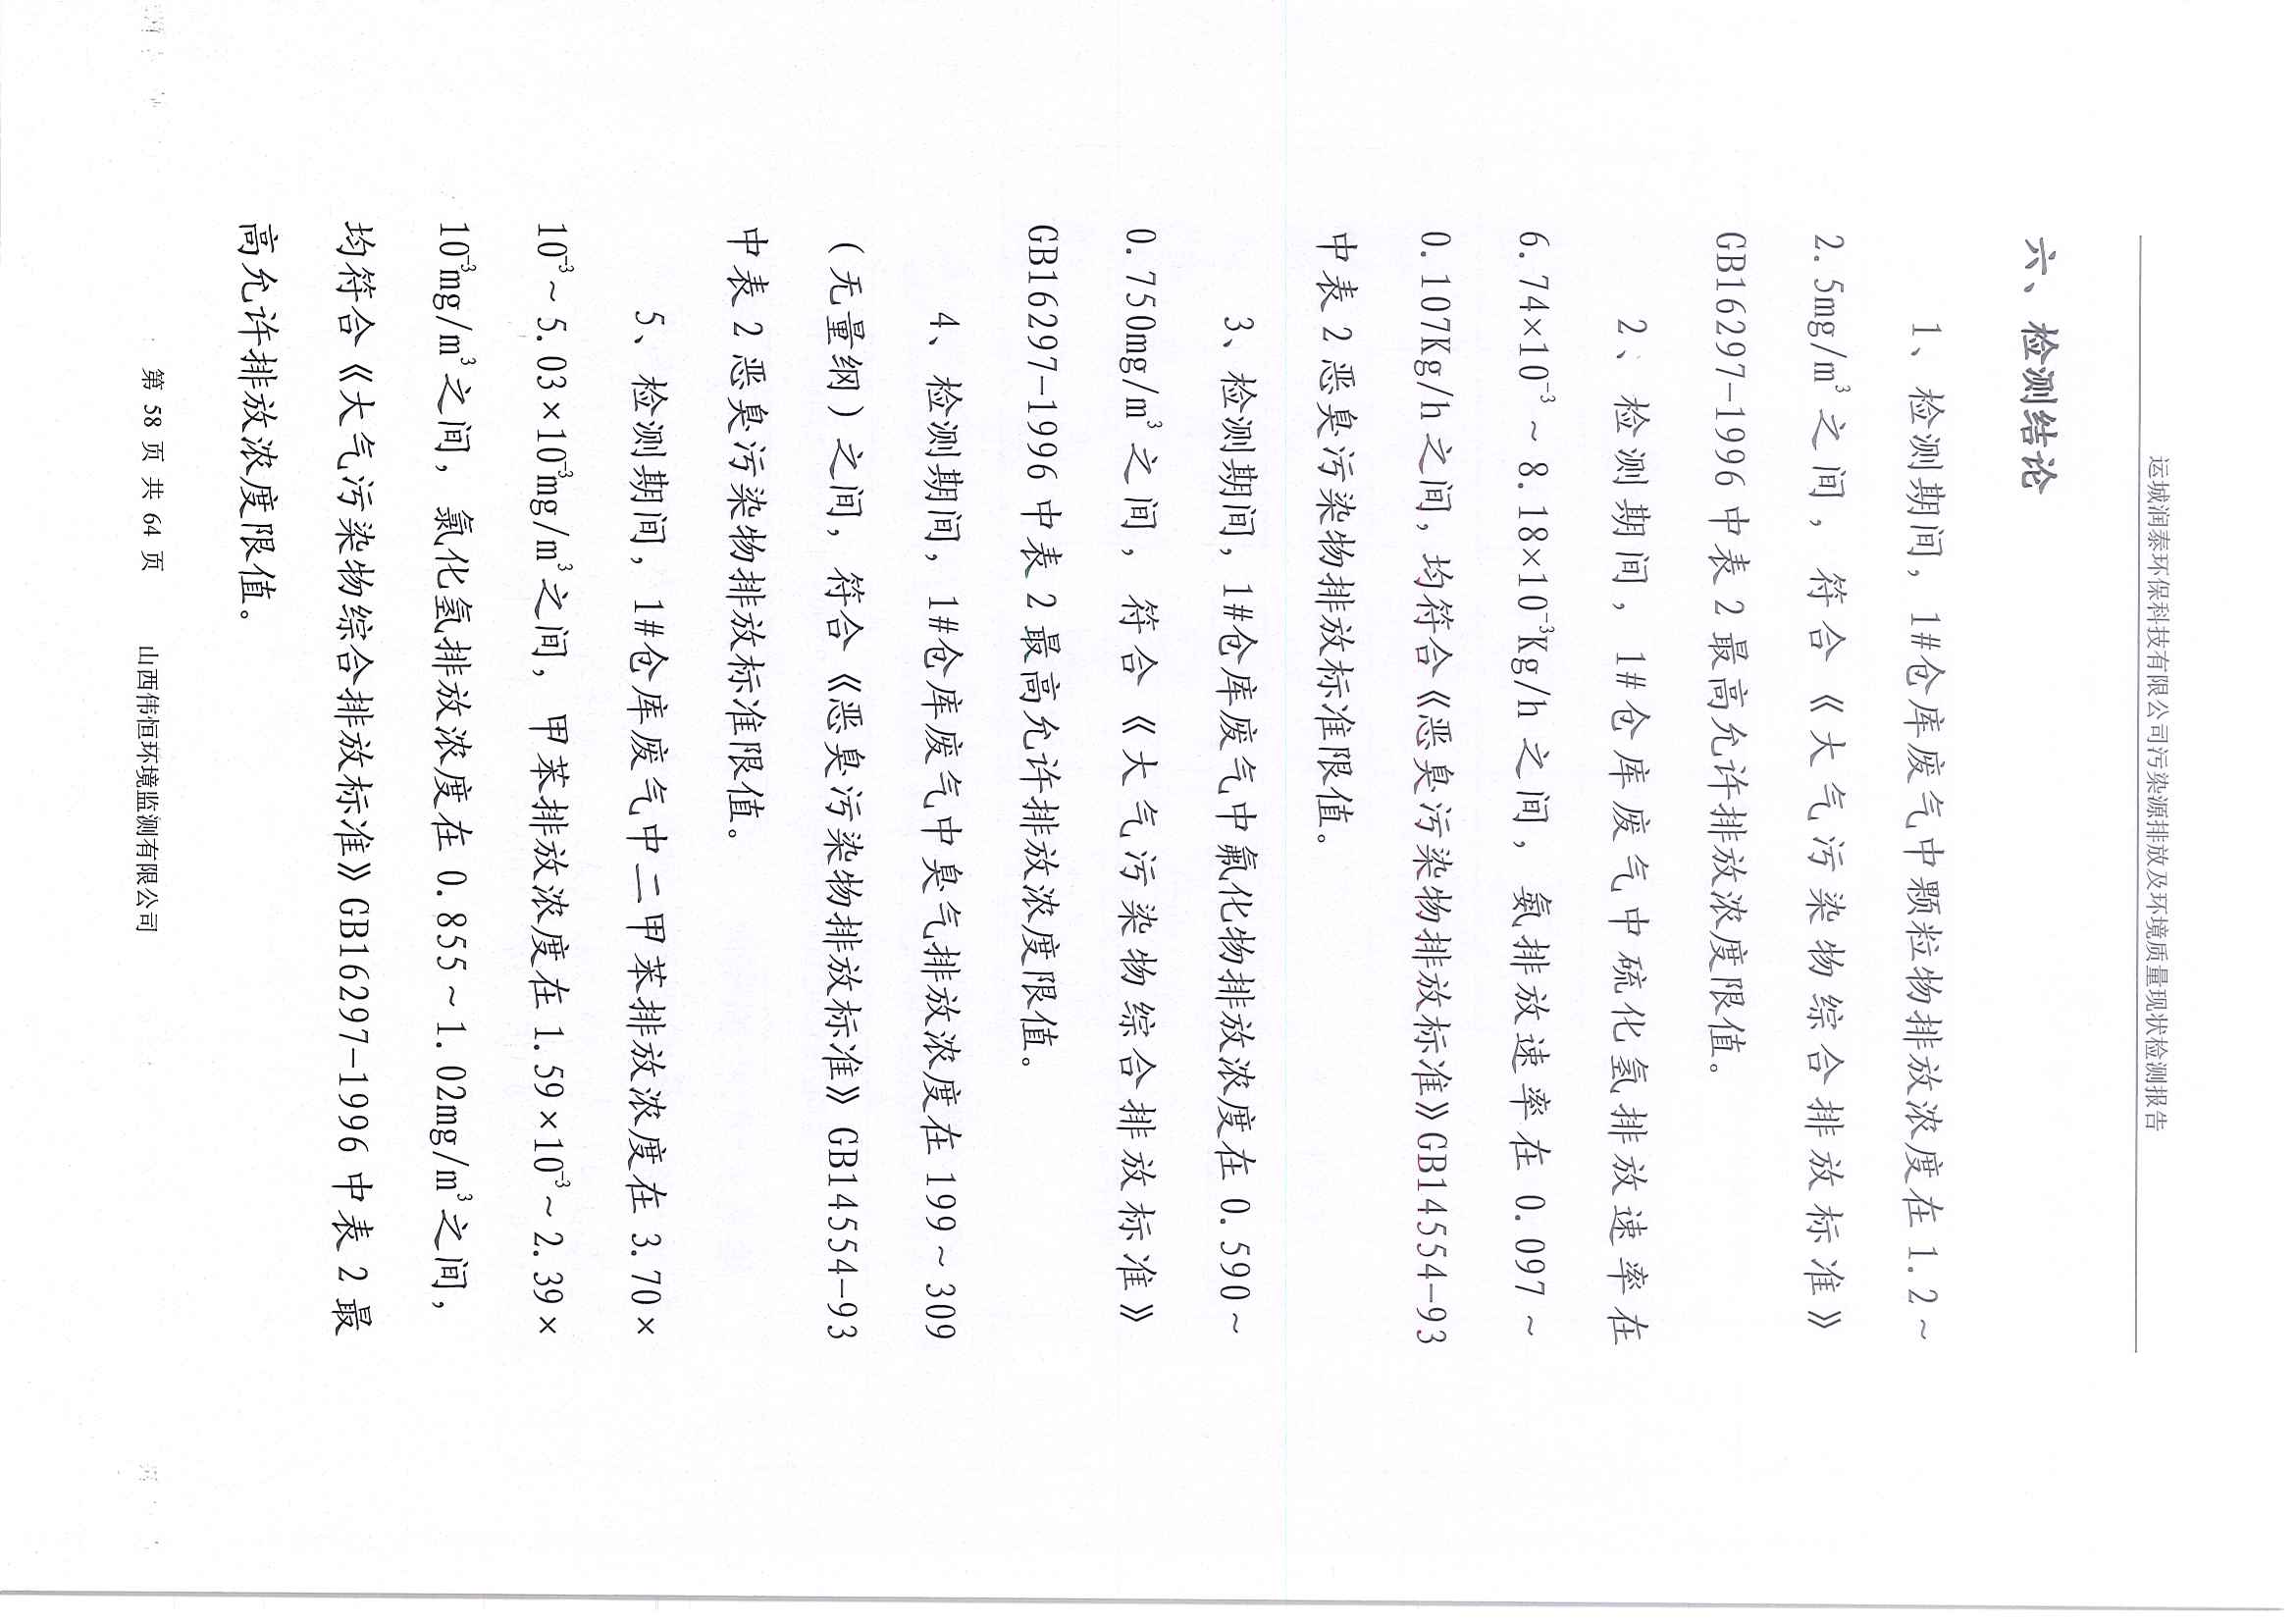 运城润泰环保科技有限公司污染源排放及环境质量现状检测报告
六、检测结论
1、检测期间，1#仓库废气中颗粒物排放浓度在 1.2～
2.5mg/m³之间，符合《大气污染物综合排放标准》
GB16297-1996 中表 2 最高允许排放浓度限值。
2、检测期间，1#仓库废气中硫化氢排放速率在
6.74×10⁻³～8.18×10⁻³Kg/h 之间，氨排放速率在 0.097～
0.107Kg/h 之间，均符合《恶臭污染物排放标准》GB14554-93
中表 2 恶臭污染物排放标准限值。
3、检测期间，1#仓库废气中氟化物排放浓度在 0.590～
0.750mg/m³之间，符合《大气污染物综合排放标准》
GB16297-1996 中表 2 最高允许排放浓度限值。
4、检测期间，1#仓库废气中臭气排放浓度在 199～309
（无量纲）之间，符合《恶臭污染物排放标准》GB14554-93
中表 2 恶臭污染物排放标准限值。
5、检测期间，1#仓库废气中二甲苯排放浓度在 3.70×
10⁻³～5.03×10⁻³mg/m³之间，甲苯排放浓度在 1.59×10⁻³～2.39×
10⁻³mg/m³之间，氯化氢排放浓度在 0.855～1.02mg/m³之间，
均符合《大气污染物综合排放标准》GB16297-1996 中表 2 最
高允许排放浓度限值。
第 58 页 共 64 页 山西伟恒环境监测有限公司